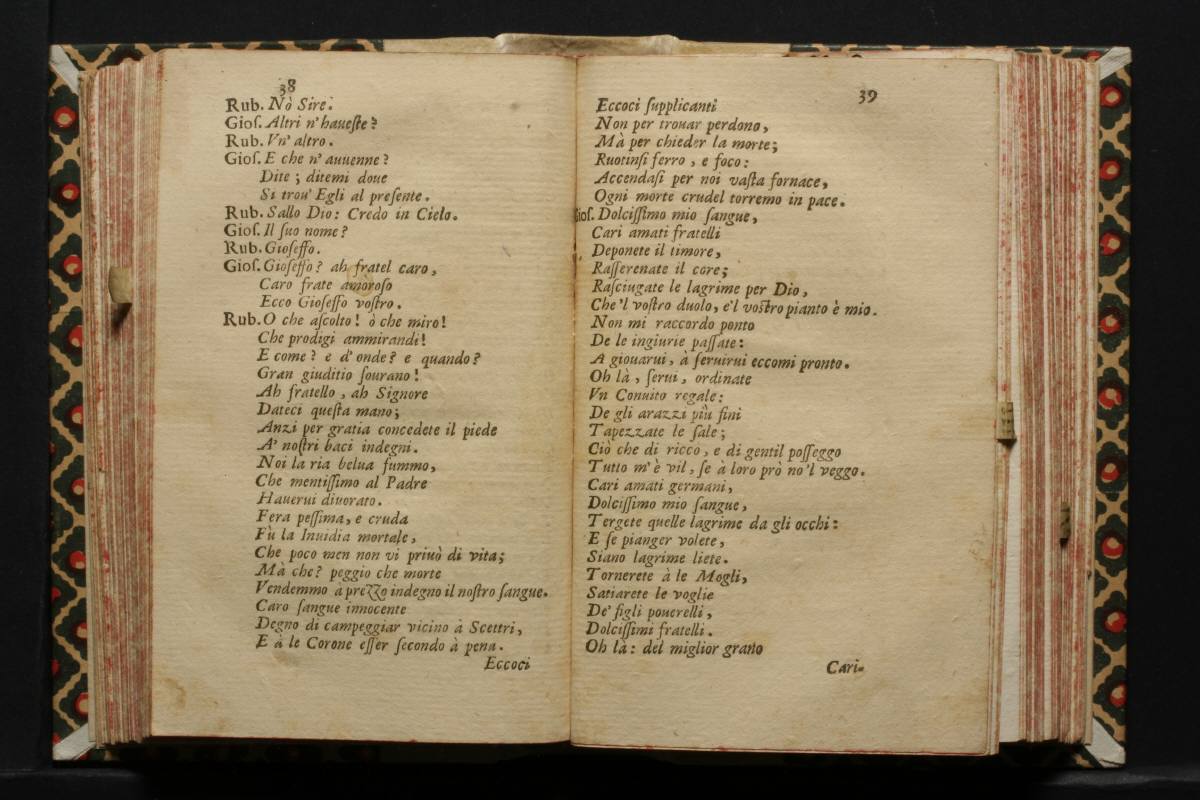 38
Rub. Nò Sire.
Gioſ. Altri n'haueſte?
Rub. Vn' altro.
Gioſ. E che n' auuenne?
Dite ; ditemi doue
Si trou' Egli al preſente.
Rub. Sallo Dio: Credo in Cielo.
Gioſ. Il ſuo nome?
Rub. Gioſeffo.
Gioſ. Gioſeffo? ah fratel caro,
Caro frate amoroſo
Ecco Gioſeffo voſtro.
Rub. O che aſcolto! ò che miro!
Che prodigi ammirandi!
E come? e d'onde? e quando?
Gran giuditio ſourano!
Ah fratello, ah Signore
Dateci queſta mano;
Anzi per gratia concedete il piede
A' noſtri baci indegni.
Noi la ria belua fummo,
Che mentiſſimo al Padre
Hauerui diuorato.
Fera peſſima, e cruda
Fù la Inuidia mortale,
Che poco men non vi priuò di vita;
Mà che? peggio che morte
Vendemmo à prezzo indegno il noſtro ſangue.
Caro ſangue innocente
Degno di campeggiar vicino à Scettri,
E à le Corone eſſer ſecondo à pena.
Eccoci
39
Eccoci ſupplicanti
Non per trouar perdono,
Mà per chieder la morte;
Ruotinſi ferro, e foco:
Accendaſi per noi vaſta fornace,
Ogni morte crudel torremo in pace.
Gioſ. Dolciſſimo mio ſangue,
Cari amati fratelli
Deponete il timore,
Raſſerenate il core;
Raſciugate le lagrime per Dio,
Che'l voſtro duolo, e'l voſtro pianto è mio.
Non mi raccordo ponto
De le ingiurie paſſate:
A giouarui, à ſeruirui eccomi pronto.
Oh là, ſerui, ordinate
Vn Conuito regale:
De gli arazzi più fini
Tapezzate le ſale;
Ciò che di ricco, e di gentil poſſeggo
Tutto m'è vil, ſe à loro prò no'l veggo.
Cari amati germani,
Dolciſſimo mio ſangue,
Tergete quelle lagrime da gli occhi:
E ſe pianger volete,
Siano lagrime liete.
Tornerete à le Mogli,
Satiarete le voglie
De' figli pouerelli,
Dolciſſimi fratelli.
Oh là: del miglior grano
Cari-